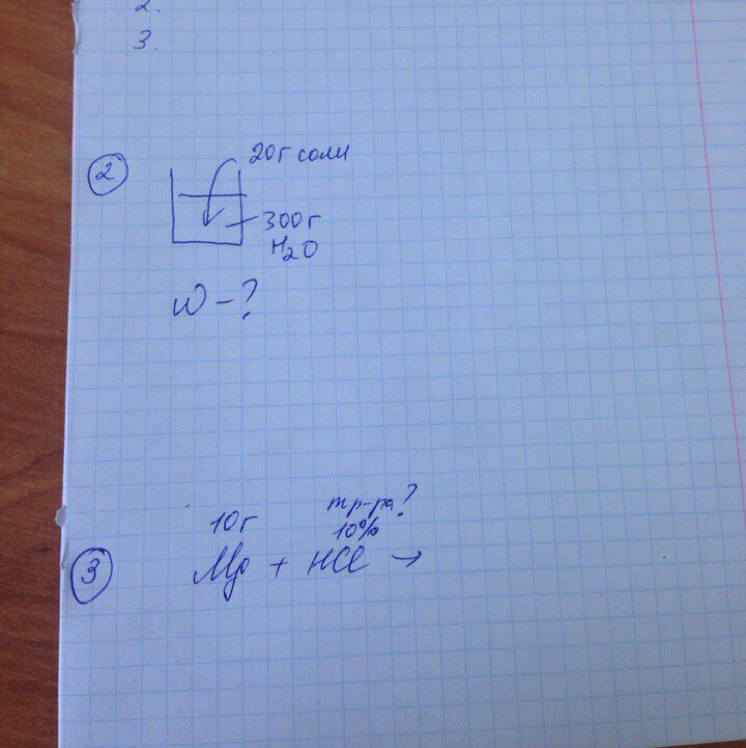 2.
3.
2
20г соли
300г
H₂O
ω - ?
10г
mр-ра?
10%
3
Mg + HCl →